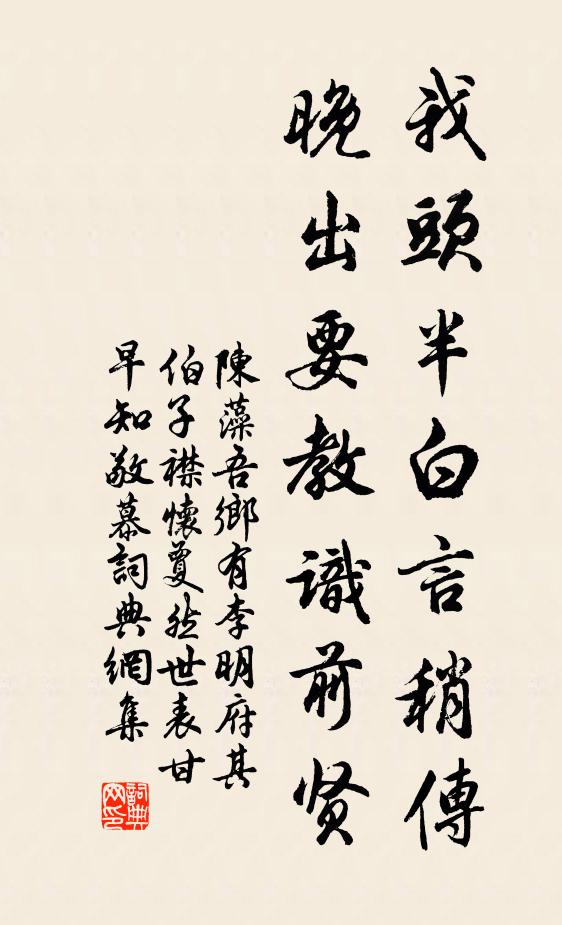 我頭半白言稍傳
晚出要教識前賢
陳藻吾鄉有李明府其
伯子襟懷夐然世表甘
早知敬慕詞典網集
詞典网印